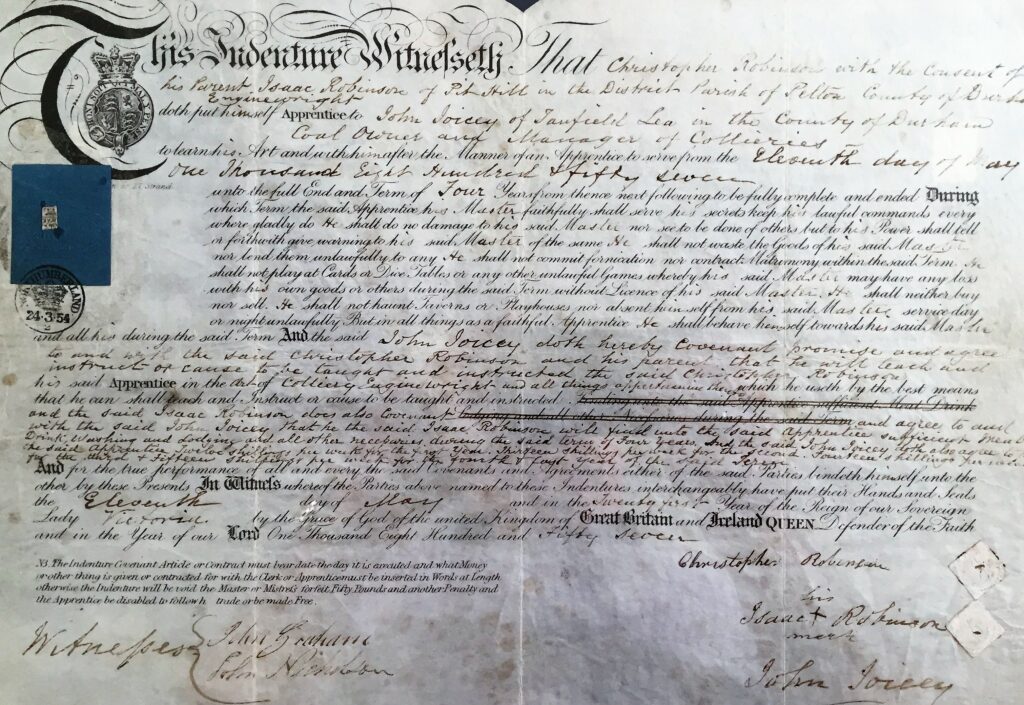 This Indenture Witnesseth That Christopher Robinson with the Consent of
his Parent Isaac Robinson of Pit Hill in the District Parish of Pelton County of Durham
Enginewright
doth put himself Apprentice to John Joicey of Tanfield Lea in the County of Durham
Coal Owner and Manager of Collieries
to learn his Art and with him after the Manner of an Apprentice to serve from the Eleventh day of May
One Thousand Eight Hundred & fifty seven
unto the full End and Term of Four Years from thence next following to be fully complete and ended During
which Term the said Apprentice his Master faithfully shall serve his secrets keep his lawful commands every
where gladly do He shall do no damage to his said Master nor see to be done of others but to his Power shall tell
or forthwith give warning to his said Master of the same He shall not waste the Goods of his said Master
nor lend them unlawfully to any He shall not commit fornication nor contract Matrimony within the said Term He
shall not play at Cards or Dice Tables or any other unlawful Games whereby his said Master may have any loss
with his own goods or others during the said Term without Licence of his said Master He shall neither buy
nor sell He shall not haunt Taverns or Playhouses nor absent himself from his said Masters service day
or night unlawfully But in all things as a faithful Apprentice He shall behave himself towards his said Master
and all his during the said Term And the said John Joicey doth hereby Covenant promise and agree
to and with the said Christopher Robinson and his parent that he will teach and
instruct or cause to be taught and instructed the said Christopher Robinson
his said Apprentice in the Art of Colliery Enginewright and all things appertaining thereto which he useth by the best means
that he can shall Teach and Instruct or cause to be taught and instructed
and the said Isaac Robinson does also Covenant and agree to and
with the said John Joicey that he the said Isaac Robinson will find unto the said Apprentice sufficient Meat
Drink, Washing and Lodging and all other necessaries, during the said term of Four Years. And the said John Joicey doth also agree to
the said apprentice Twelve shillings per week for the first Year, Thirteen shillings per week for the second Fourteen
& Fifteen shillings per week for the fourth & last Year of the said Term
And for the true performance of all and every the said Covenants and Agreements either of the said Parties bindeth himself unto the
other by these Presents In Witness whereof the Parties above named to these Indentures interchangeably have put their Hands and Seals
the Eleventh day of May and in the Twenty first Year of the Reign of our Sovereign
Lady Victoria by the Grace of God of the united Kingdom of Great Britain and Ireland QUEEN Defender of the Faith
and in the Year of our Lord One Thousand Eight Hundred and Fifty Seven
NB. The Indenture Covenant Article or Contract must bear date the day it is executed and what Money
or other thing is given or contracted for with the Clerk or Apprentice must be inserted in Words at Length
otherwise the Indenture will be void the Master or Mistress forfeit Fifty Pounds and another Penalty and
the Apprentice be disabled to follow h trade or be made Free.
24.3.54
Christopher Robinson
his
Isaac + Robinson
mark
John Joicey
Witnesses
John Graham
John